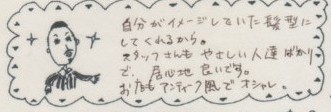 自分がイメージしていた髪型に
してくれるから。
スタッフさんも やさしい人達 ばかり
で、居心地 良いです。
お店も アンティーク風で オシャレ。